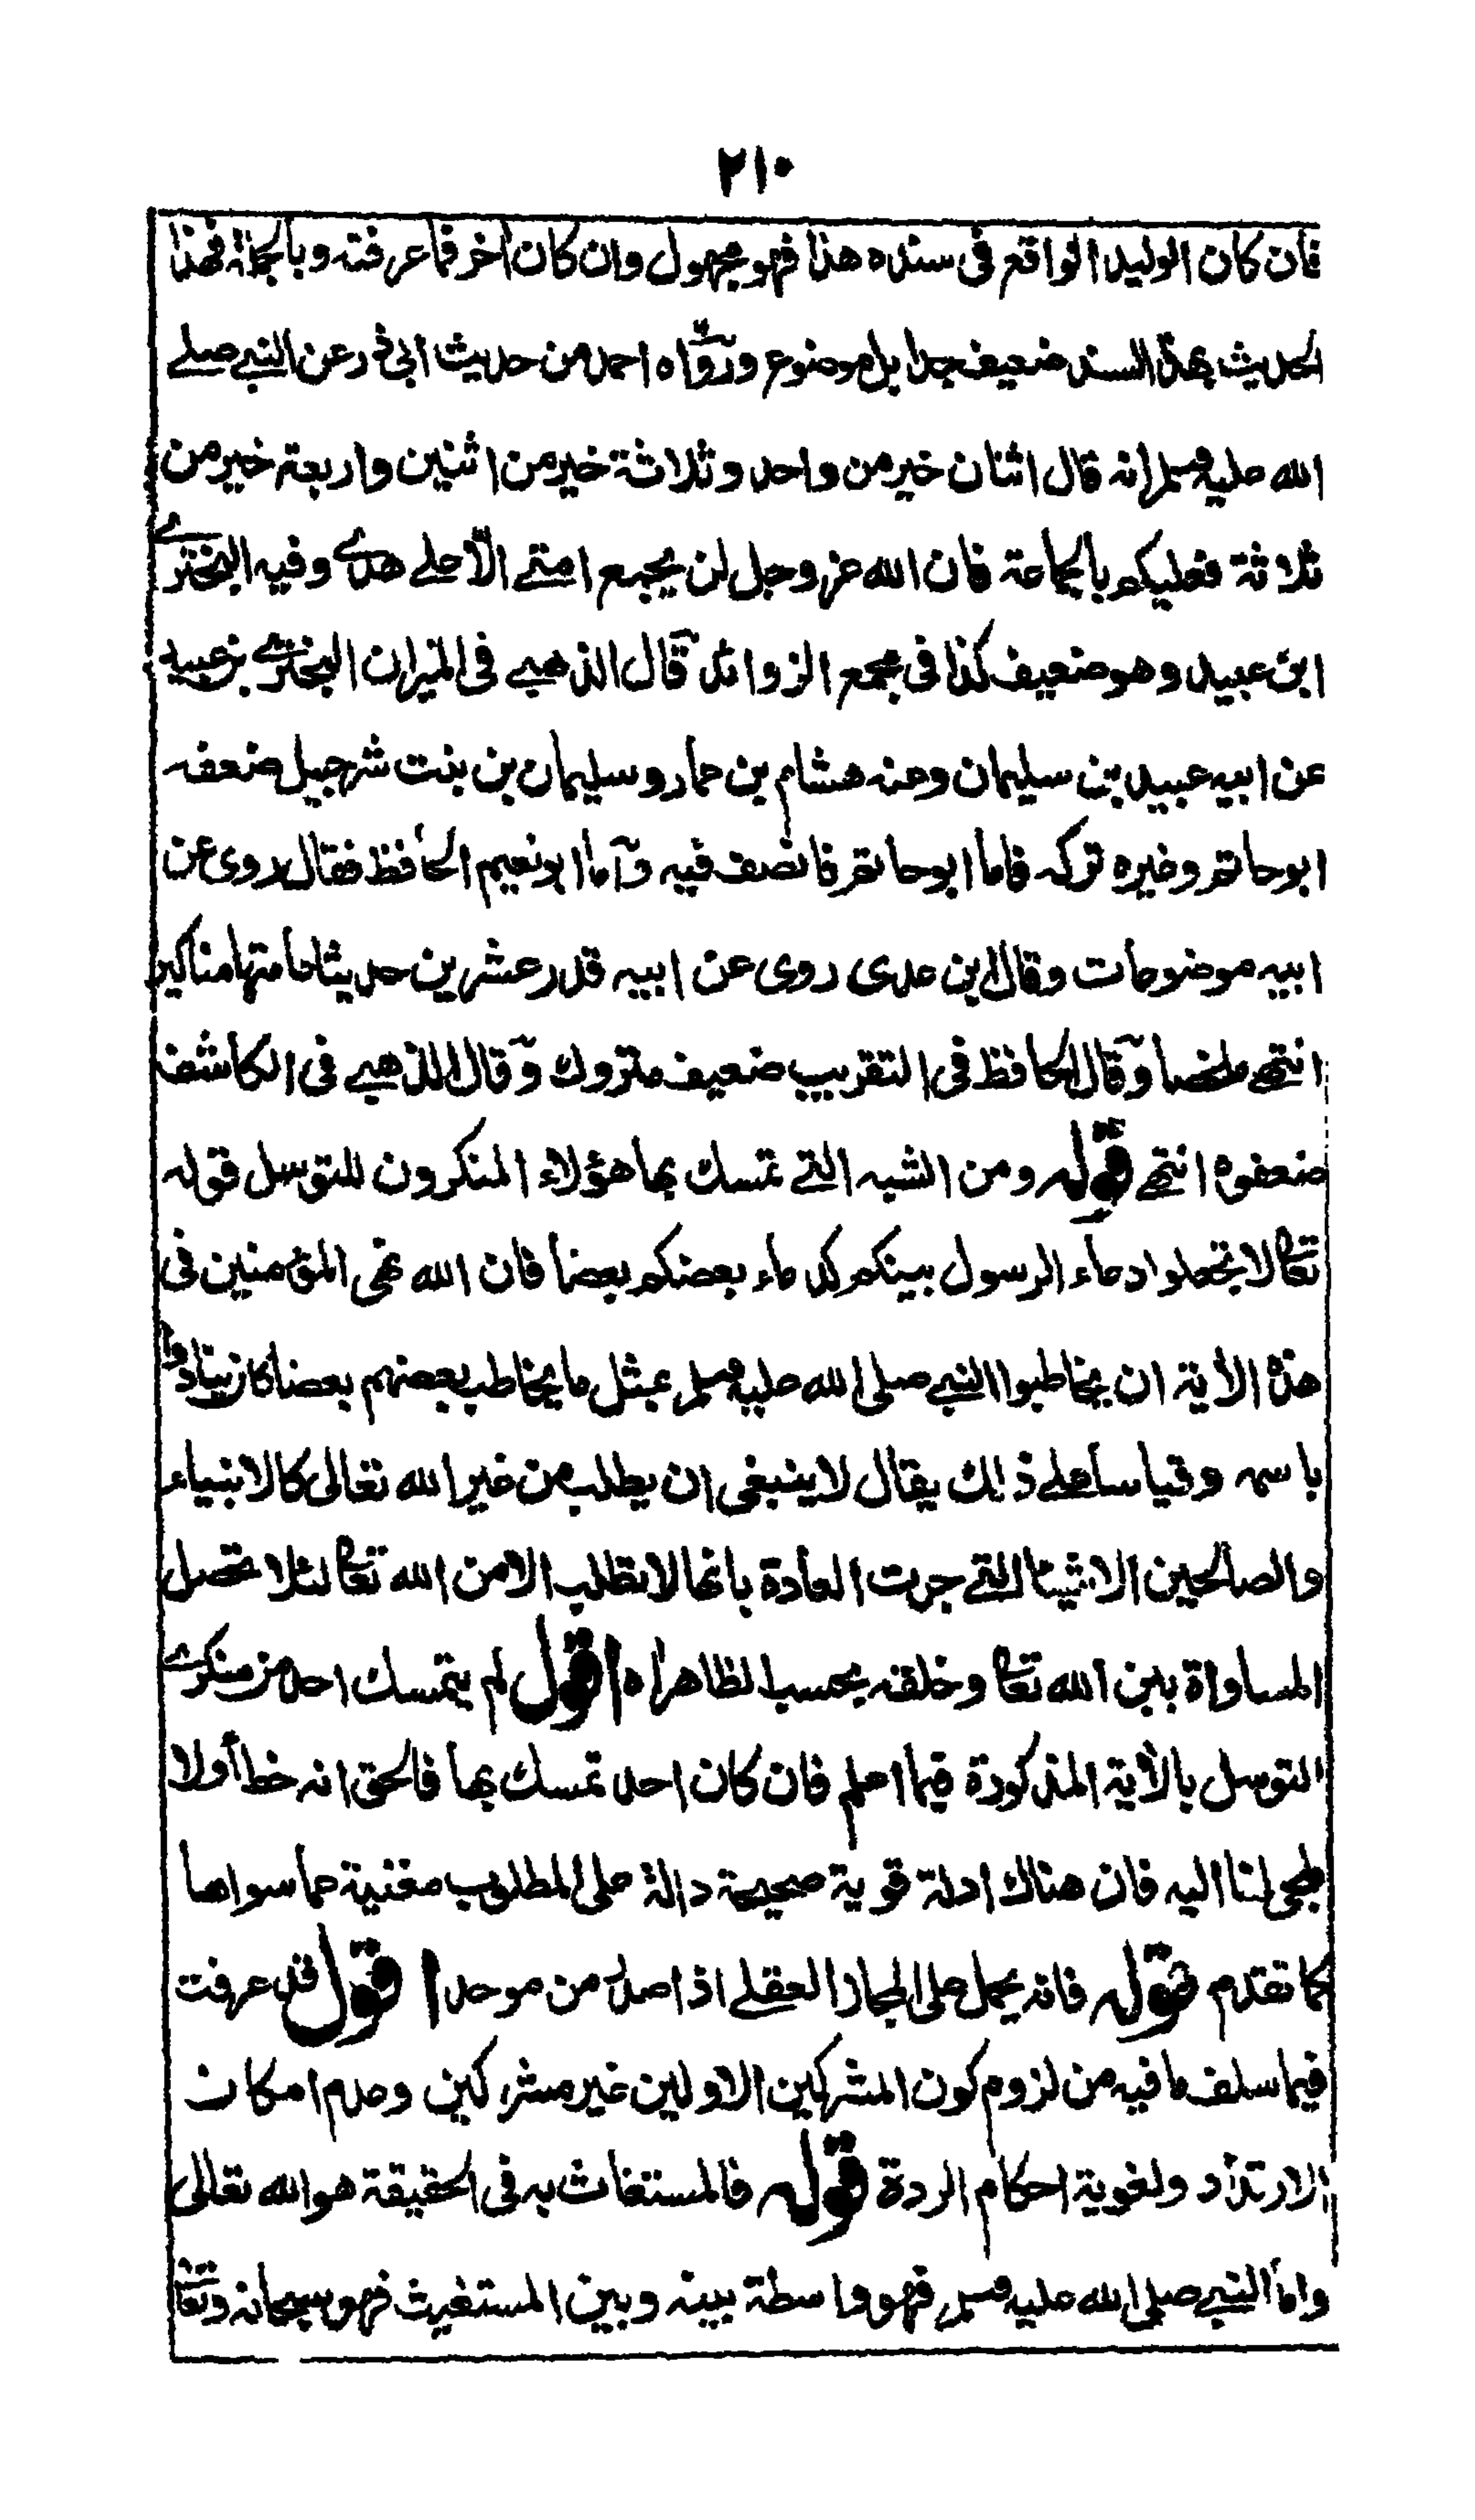 ٢١٠
فان كان الوليد الواقع في سنده هذا فهو مجهول وان كان اخر فما عرفته وبالجملة فهذا
الحديث بهذا السند ضعيف جدا بل موضوع ورواه احمد من حديث ابي ذر عن النبي صلى
الله عليه وسلم انه قال اثنان خير من واحد وثلاثة خير من اثنين واربعة خير من
ثلاثة فعليكم بالجماعة فان الله عز وجل لن يجمع امتي الا على هدى وفيه البختري
ابن عبيد وهو ضعيف كذا في مجمع الزوائد قال الذهبي في الميزان البختري بن عبيد
عن ابيه عبيد بن سليمان وعنه هشام بن عمار وسليمان بن بنت شرحبيل ضعفه
ابو حاتم وغيره تركه فاما ابو حاتم فانصف فيه واما ابو نعيم الحافظ فقال روى عن
ابيه موضوعات وقال ابن عدي روى عن ابيه قدر عشرين حديثا عامتها مناكير
انتهى ملخصا وقال الحافظ في التقريب ضعيف متروك وقال الذهبي في الكاشف
ضعفوه انتهى قوله ومن الشبه التي تمسك بها هؤلاء المنكرون للتوسل قوله
تعا لا تجعلوا دعاء الرسول بينكم كدعاء بعضكم بعضا فان الله نهى المؤمنين في
هذه الأية ان يخاطبوا النبي صلى الله عليه وسلم بمثل ما يخاطب بعضهم بعضا كان ينادوه
باسمه وقياسا على ذلك يقال لا ينبغي ان يطلب من غير الله تعالى كالانبياء
والصالحين الاشياء التي جرت العادة بانها لا تطلب الا من الله تعا لئلا تحصل
المساواة بين الله تعا وخلقه بحسب الظاهر اه اقول لم يتمسك احد من منكري
التوسل بالأية المذكورة فيما اعلم فان كان احد تمسك بها فالحق انه خطأ ولا
ملجى لنا اليه فان هناك ادلة قوية صحيحة دالة على المطلوب مغنية عما سواها
كما تقدم قوله فانه يحمل على المجاز العقلي اذا صدر من موحد اقول قد عرفت
فيما سلف ما فيه من لزوم كون المشركين الاولين غير مشركين وعدم امكان
الارتداد ولغوية احكام الردة قوله فالمستغاث به في الحقيقة هو الله تعالى
واما النبي صلى الله عليه وسلم فهو واسطة بينه وبين المستغيث فهو سبحانه وتعا